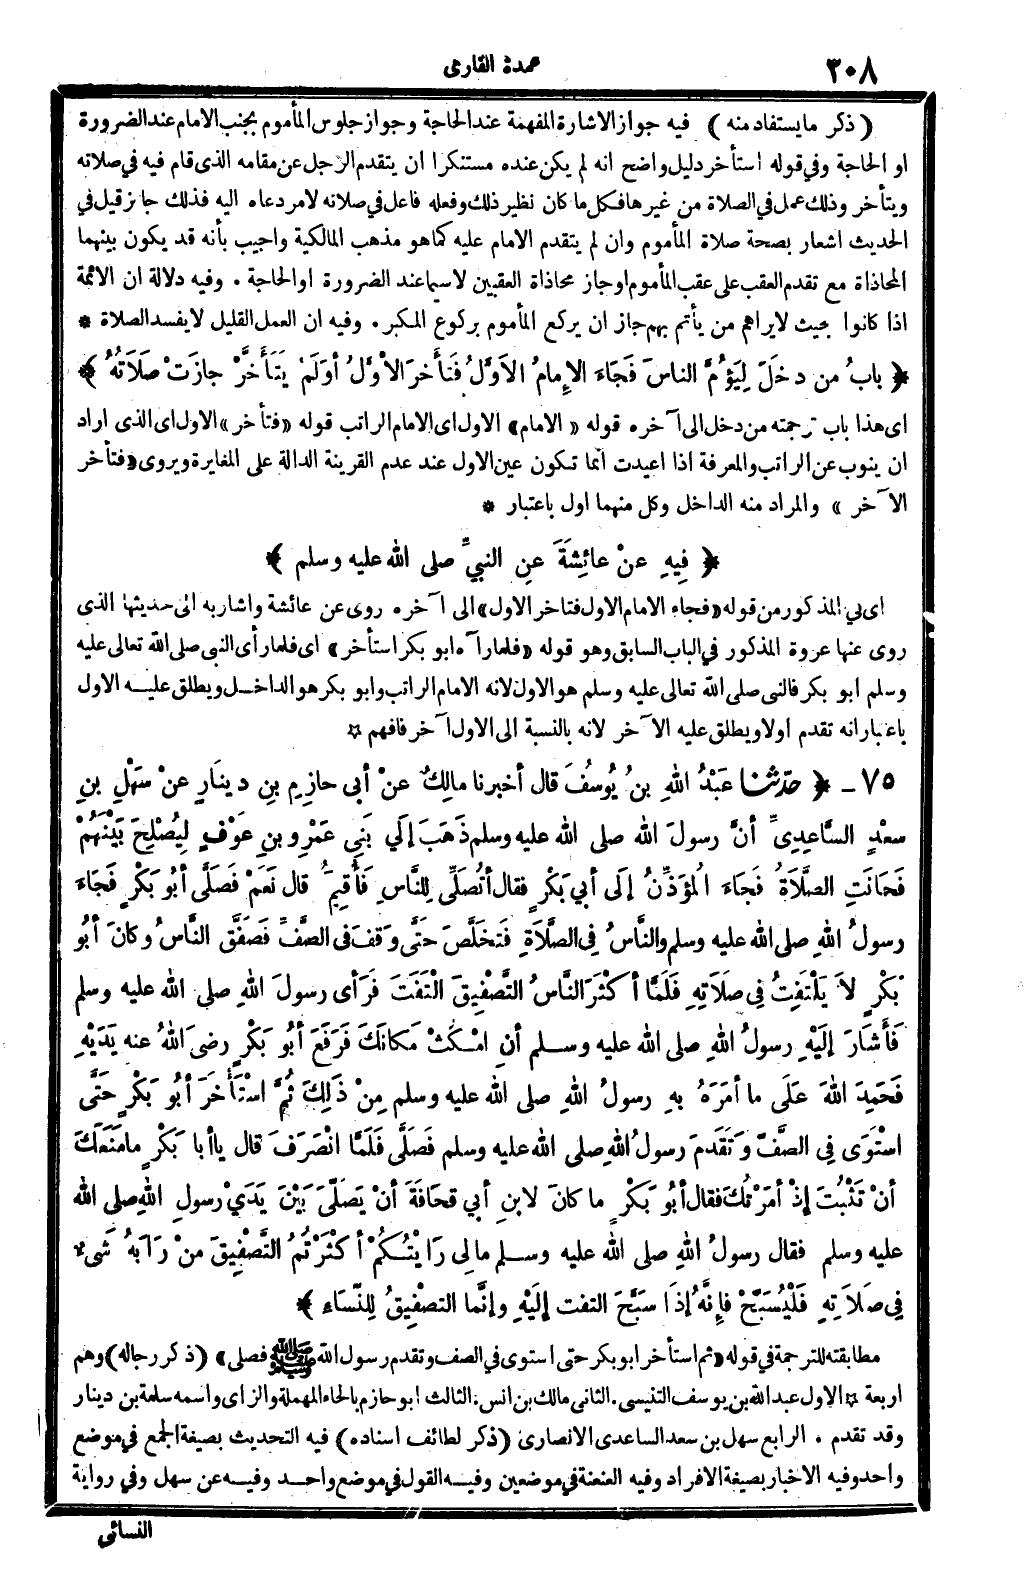 ٢٠٨
عمدة القارى
(ذكر ما يستفاد منه) فيه جواز الاشارة المفهمة عند الحاجة وجواز جلوس المأموم بجنب الامام عند الضرورة
او الحاجة وفي قوله استأخر دليل واضح انه لم يكن عنده مستنكرا ان يتقدم الرجل عن مقامه الذى قام فيه في صلاته
ويتأخر وذلك عمل في الصلاة من غيرها فكل ما كان نظير ذلك وفعله فاعل في صلاته لامر دعاه اليه فذلك جائز قيل في
الحديث اشعار بصحة صلاة المأموم وان لم يتقدم الامام عليه كما هو مذهب المالكية واجيب بأنه قد يكون بينهما
المحاذاة مع تقدم العقب على عقب المأموم او جاز محاذاة العقبين لا سيما عند الضرورة او الحاجة ۰ وفيه دلالة ان الائمة
اذا كانوا بحيث لا يراهم من يأتم بهم جاز ان يركع المأموم بركوع المكبر ۰ وفيه ان العمل القليل لا يفسد الصلاة *
﴿ بابُ من دخَلَ لِيَؤُمَّ الناسَ فَجَاءَ الإِمامُ الأوَّلُ فَتَأَخرَ الأوَّلُ أوْ لَمْ يَتَأَخَّرْ جازَتْ صلاَتُهُ ﴾
اى هذا باب ترجمته من دخل الى آخره قوله «الامام» الاول اى الامام الراتب قوله «فتأخر» الاول اى الذى اراد
ان ينوب عن الراتب والمعرفة اذا اعيدت انما تكون عين الاول عند عدم القرينة الدالة على المغايرة ويروى «فتأخر
الآخر» والمراد منه الداخل وكل منهما اول باعتبار *
﴿ فِيهِ عنْ عائِشَةَ عنِ النبيِّ صلى الله عليه وسلم ﴾
اى في المذكور من قوله «فجاء الامام الاول فتاخر الاول» الى آخره روى عن عائشة واشار به الى حديثها الذى
روى عنها عروة المذكور في الباب السابق وهو قوله «فلما رآه ابو بكر استأخر» اى فلما رأى النبى صلى الله تعالى عليه
وسلم ابو بكر فالنبى صلى الله تعالى عليه وسلم هو الاول لانه الامام الراتب وابو بكر هو الداخل ويطلق عليه الاول
باعتبار انه تقدم اولا ويطلق عليه الآخر لانه بالنسبة الى الاول آخر فافهم ☆
٧٥ - ﴿ حدثنا عَبْدُ اللهِ بنُ يُوسُفَ قال أخبرنا مالِكٌ عنْ أبى حازِمِ بنِ دينارٍ عنْ سَهْلِ بنِ
سعْدٍ السَّاعِدِىِّ أنَّ رسولَ الله صلى الله عليه وسلم ذَهَبَ إلَي بَنِي عَمْرِو بنِ عَوْفٍ لِيُصْلِحَ بَيْنَهُمْ
فَحَانَتِ الصَّلاَةُ فَجَاءَ الْمُؤَذِّنُ إلَى أبي بَكْرٍ فقال أتُصَلِّى لِلنَّاسِ فَأُقِيمُ قال نَعَمْ فَصَلَّى أبُو بَكْرٍ فَجَاءَ
رسولُ اللهِ صلى الله عليه وسلم والنَّاسُ فِي الصَّلاَةِ فَتَخَلَّصَ حَتَّى وَقَفَ فى الصَّفِّ فَصَفَّقَ النَّاسُ وكانَ أبُو
بَكْرٍ لاَ يَلْتَفِتُ فِي صلاَتِهِ فَلَمَّا أكْثَرَ النَّاسُ التَّصْفِيقَ الْتَفَتَ فَرَأى رسولَ اللهِ صلى الله عليه وسلم
فَأَشَارَ إلَيْهِ رسولُ اللهِ صلى الله عليه وسلم أنِ امْكُثْ مَكانَكَ فَرَفَعَ أبُو بَكْرٍ رضى اللهُ عنه يَدَيْهِ
فَحَمِدَ اللهَ عَلَى ما أمَرَهُ بهِ رسولُ اللهِ صلى الله عليه وسلم مِنْ ذَلِكَ ثُمَّ اسْتَأْخَرَ أبُو بَكْرٍ حَتَّى
اسْتَوَى فِي الصَّفِّ وَتَقَدَمَ رسولُ اللهِ صلى الله عليه وسلم فَصَلَّى فَلَمَّا انْصَرَفَ قال ياأبا بَكْرٍ مامَنَعَكَ
أنْ تَثْبُتَ إذْ أمَرْتُكَ فقال أبُو بَكْرٍ ما كانَ لابنِ أبي قحَافَةَ أنْ يُصَلِّىَ بَيْنَ يَدَيْ رسولِ اللهِ صلى الله
عليه وسلم فقال رسولُ اللهِ صلى الله عليه وسلم مالِى رَأيْتُكُمْ أكْثَرْتُمُ التَّصْفِيقَ منْ رَابَهُ شَىءٌ
فِي صَلاَتِهِ فَلْيُسَبِّحْ فإِنَّهُ إذَا سَبَّحَ التفت إلَيْهِ وإنَّما التصْفِيقُ لِلنِّسَاءِ ﴾
مطابقته للترجمة في قوله «ثم استأخر ابو بكر حتى استوى في الصف وتقدم رسول الله ﷺ فصلى» (ذكر رجاله) وهم
اربعة ☆ الاول عبد الله بن يوسف التنيسى . الثانى مالك بن انس . الثالث ابو حازم بالحاء المهملة والزاى واسمه سلمة بن دينار
وقد تقدم ۰ الرابع سهل بن سعد الساعدى الانصارى (ذكر لطائف اسناده) فيه التحديث بصيغة الجمع في موضع
واحد وفيه الاخبار بصيغة الافراد وفيه العنعنة في موضعين وفيه القول في موضع واحد وفيه عن سهل وفي رواية
النسائى